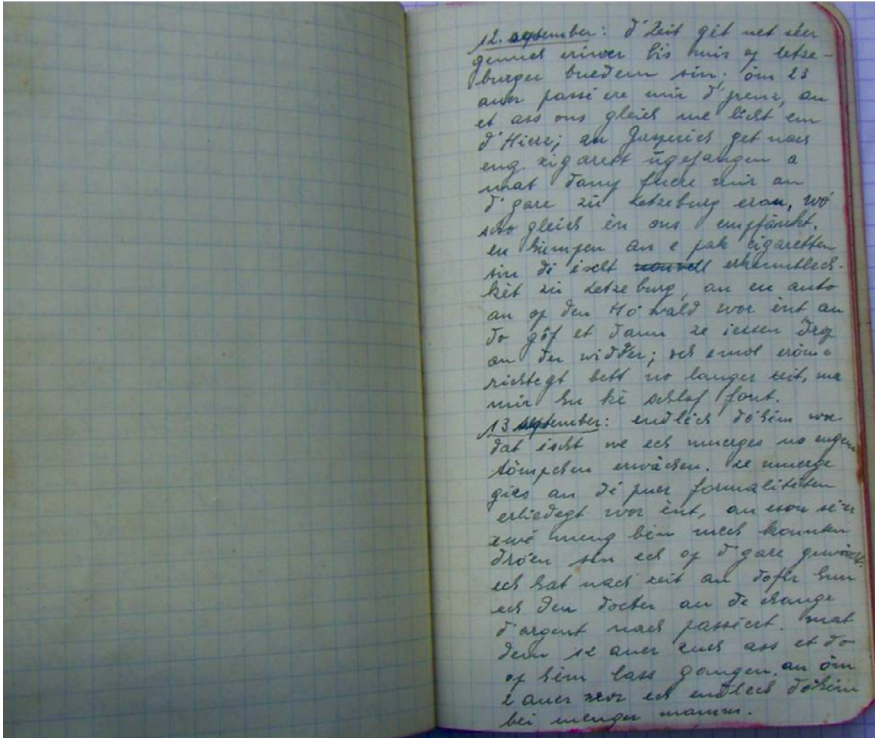 12. september: d'Zeit gêt net séer
genuch eriwer bis mir op letze-
burger buedem sin. öm 23
auer passéere mir d'grenz, an
et ass ons gleich me licht em
d'Hierz; zu Gasperich get nach
eng zigarett ûgefangen a
mat damp fuere mir an
d'gare zu Letzeburg eran, wó
scho gleich én ons empfänkt.
en humpen an e pak cigaretten
sin dí ischt erkenntlech-
két zu Letzeburg, an en auto
an op den Hó'wald wor ént an
do gôf et dann ze iessen drop
an der widder; och emol eröm e
richtegt bett no langer zeit, ma
mir hu ké schlof font.
13 september: endlech dóhém wor
dat ischt we ech muerges no engem
tömpchen erwächen. ze muerge
giess an dí puer formalitéten
erliedegt wor ént, an esou séier
zwé meng bén mech konnten
dróen sin ech op d'gare gewóscht.
ech hat nach zeit an dofir hun
ech den docter an de change
d'argent nach passéert. mat
dem 12 auer zuch ass et do
op hém lass gaangen. an öm
2 auer wor ech endlech dóhém
bei menger mamm.